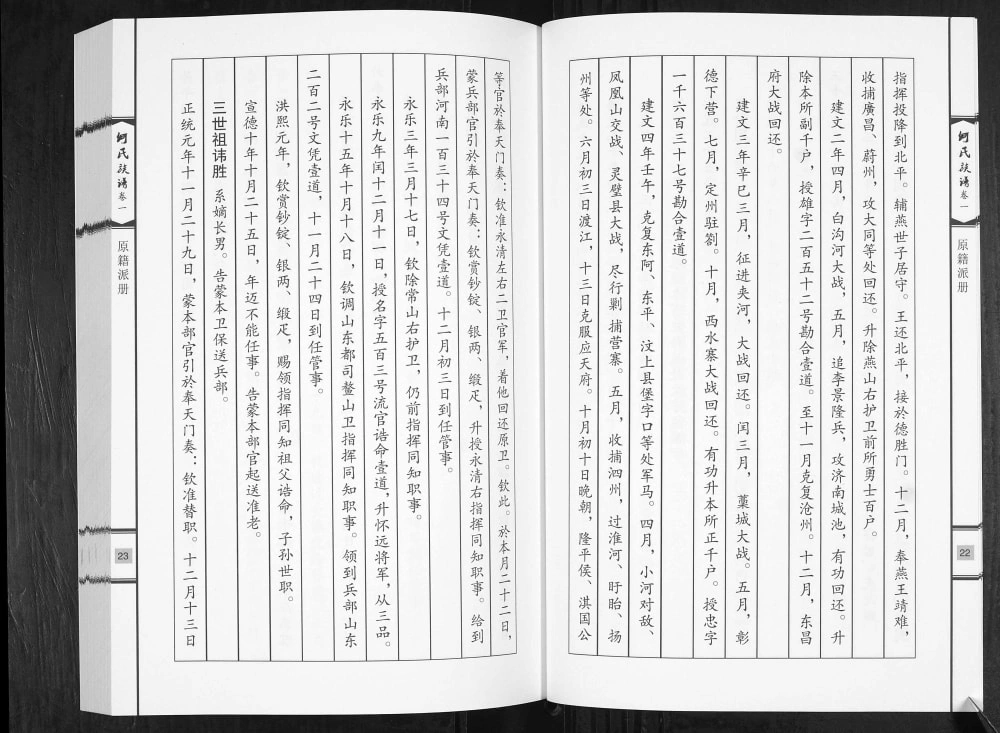 何氏族谱 卷一
原籍派册
22
指挥投降到北平。辅燕世子居守。王还北平，接於德胜门。十二月，奉燕王靖难，
收捕廣昌、蔚州，攻大同等处回还。升除燕山右护卫前所勇士百户。
建文二年四月，白沟河大战，五月，追李景隆兵，攻济南城池，有功回还。升
除本所副千户，授雄字二百五十二号勘合壹道。至十一月克复沧州。十二月，东昌
府大战回还。
建文三年辛巳三月，征进夹河，大战回还。闰三月，藁城大战。五月，彰
德下营。七月，定州驻劄。十月，西水寨大战回还。有功升本所正千户。授忠字
一千六百三十七号勘合壹道。
建文四年壬午，克复东阿、东平、汶上县堡字口等处军马。四月，小河对敌、
凤凰山交战、灵璧县大战，尽行剿 捕营寨。五月，收捕泗州，过淮河、盱眙、扬
州等处。六月初三日渡江，十三日克服应天府。十月初十日晚朝，隆平侯、淇国公
等官於奉天门奏：钦准永清左右二卫官军，着他回还原卫。钦此。於本月二十二日，
蒙兵部官引於奉天门奏：钦赏钞锭、银两、缎疋，升授永清右指挥同知职事。给到
兵部河南一百三十四号文凭壹道。十二月初三日到任管事。
永乐三年三月十七日，钦除常山右护卫，仍前指挥同知职事。
永乐九年闰十二月十一日，授名字五百三号流官诰命壹道，升怀远将军，从三品。
永乐十五年十月十八日，钦调山东都司鳌山卫指挥同知职事。领到兵部山东
二百二号文凭壹道，十一月二十四日到任管事。
洪熙元年，钦赏钞锭、银两、缎疋，赐领指挥同知祖父诰命，子孙世职。
宣德十年十月二十五日，年迈不能任事。告蒙本部官起送准老。
三世祖讳胜 系嫡长男。告蒙本卫保送兵部。
正统元年十一月二十九日，蒙本部官引於奉天门奏：钦准替职。十二月十三日
何氏族谱 卷一
原籍派册
23